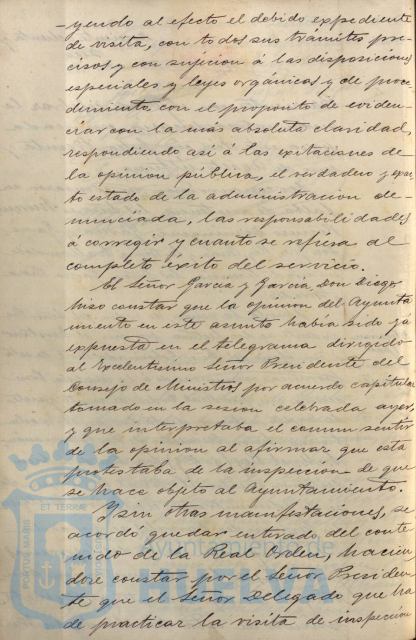 -yendo al efecto el debido expediente
de visita, con todos sus trámites pre-
cisos y con sujecion á las disposiciones
especiales y leyes orgánicas y de proce-
dimiento con el proposito de eviden-
ciar con la más absoluta claridad,
respondiendo así á las exitaciones de
la opinion pública, el verdadero y exac-
to estado de la administracion de-
nunciada, las responsabilidades
á corregir y cuanto se refiera al
completo éxito del servicio.
El Señor García y García, Don Diego
hizo constar que la opinion del Ayunta-
miento en este asunto había sido ya
expuesta en el telegrama dirigido
al Excelentísimo Señor Presidente del
Consejo de Ministros por acuerdo capitular
tomado en la sesion celebrada ayer,
y que interpretaba el comun sentir
de la opinion al afirmar que esta
protestaba de la inspeccion de que
se hace objeto al Ayuntamiento.
Y sin otras manifestaciones, se
acordó quedar enterado del conte-
nido de la Real Orden, hacien-
dose constar por el Señor Presiden-
te que el Señor Delegado que ha
de practicar la visita de inspección